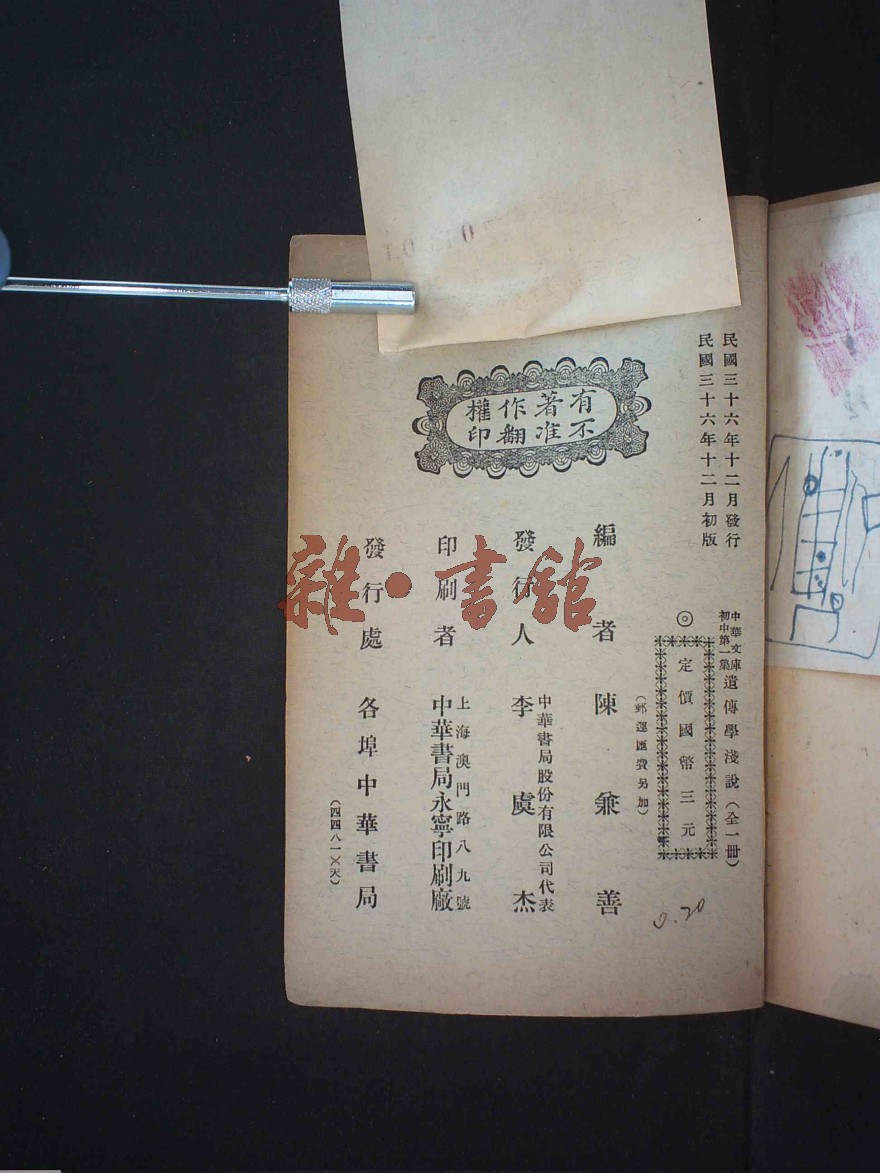 民國三十六年十二月發行
民國三十六年十二月初版
中華文庫
初中第一集
遺傳學淺說（全一冊）
◎定價國幣三元
（郵運匯費另加）
有著作權
不准翻印
編者 陳兼善
發行人 李虞杰
中華書局股份有限公司代表
印刷者
上海澳門路八九號
中華書局永寧印刷廠
發行處 各埠中華書局
（四四八一）（天）
0.20
雜·書館